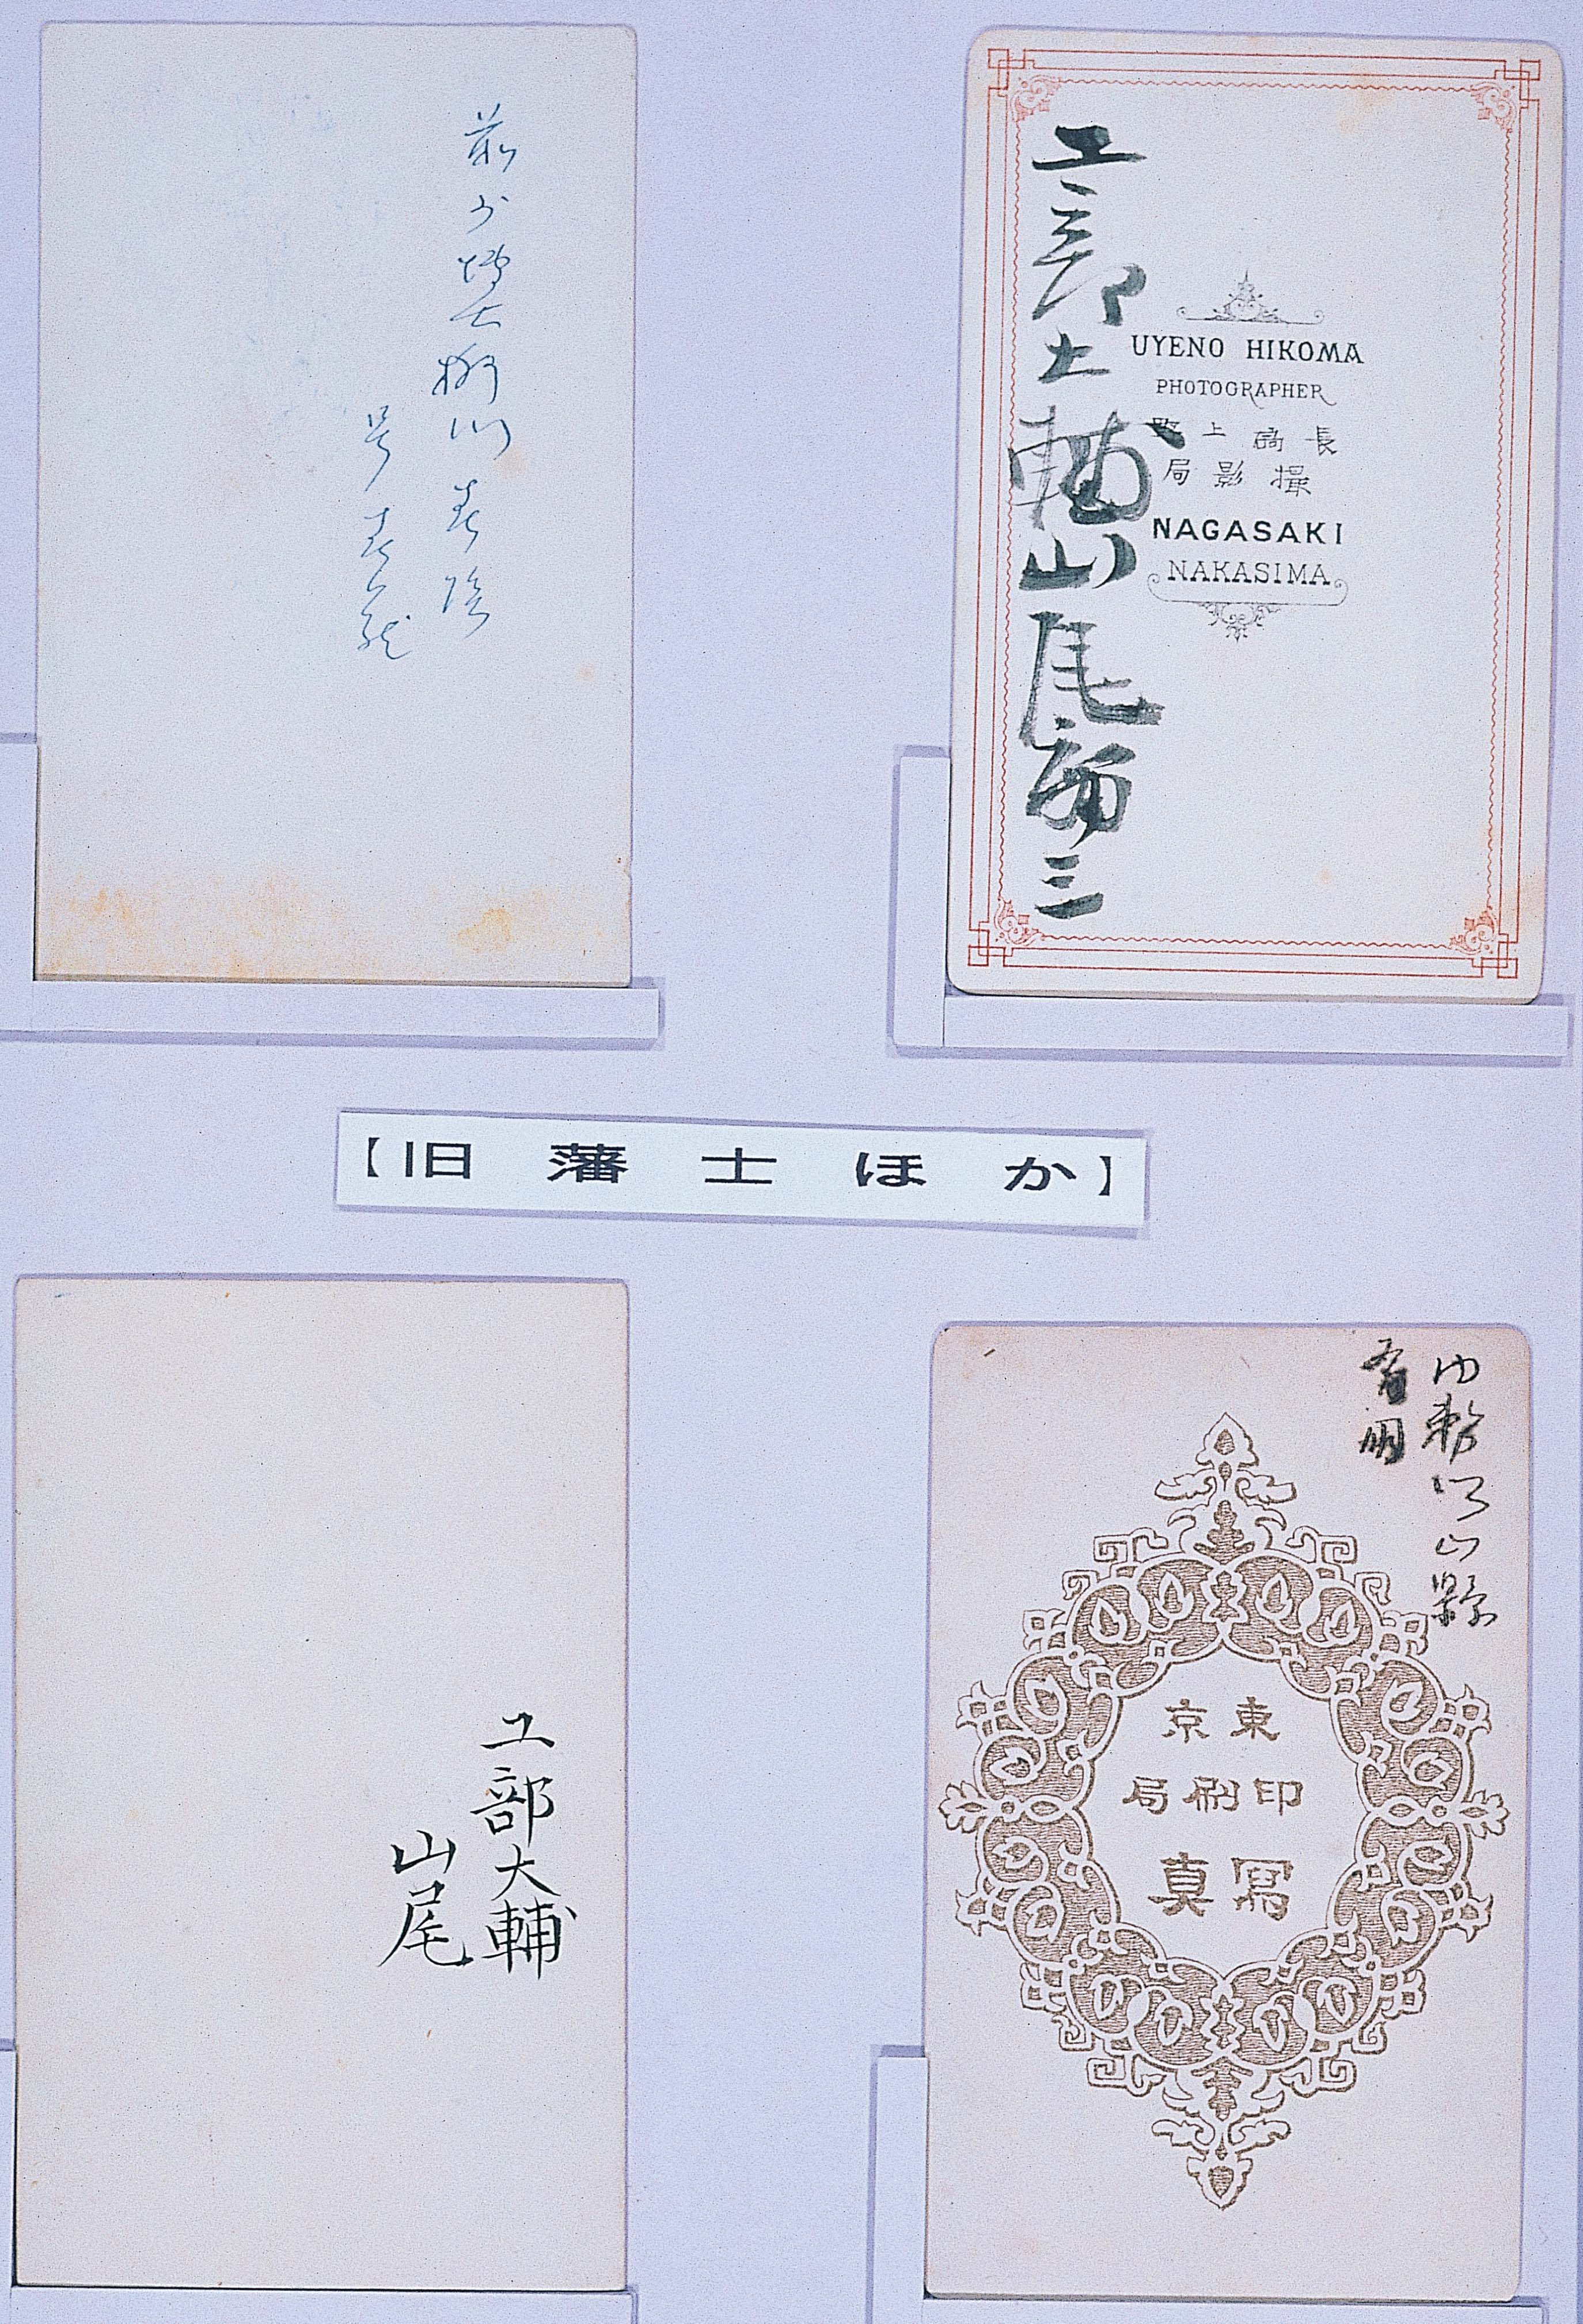 前少博士柳川春蔭
号春
工部大輔山尾庸三
UYENO HIKOMA
PHOTOGRAPHER
長崎上野
撮影局
NAGASAKI
NAKASIMA
【旧藩士ほか】
工部大輔
山尾
内務卿山縣
有朋
東京
印刷局
寫真